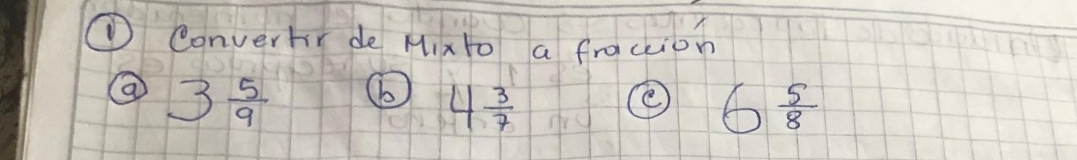 ① Convertir de Mixto a fracción
ⓐ 3 5/9 ⓑ 4 3/7 ⓒ 6 5/8